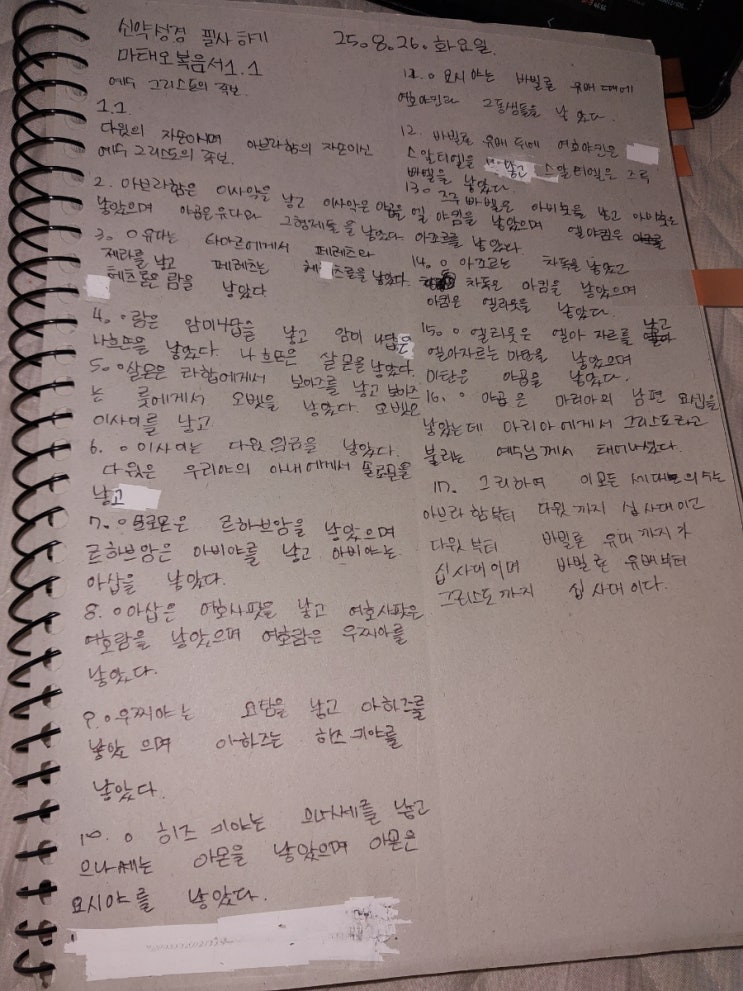 신약성경 필사하기
25. 8. 26. 화요일.
마태오복음서 1.1
예수 그리스도의 족보.
1.1
다윗의 자손이시며 아브라함의 자손이신
예수 그리스도의 족보.
2. 아브라함은 이사악을 낳고 이사악은 야곱을
낳았으며 야곱은 유다와 그형제들을 낳았다.
3. ㅇ유다는 타마르에게서 페레츠와
제라를 낳고 페레츠는 헤츠론을 낳았다.
헤츠론은 람을 낳았다
4. ㅇ람은 암미나답을 낳고 암미나답은
나흐손을 낳았다. 나흐손은 살몬을 낳았다.
5. ㅇ살몬은 라합에게서 보아즈를 낳고 보아즈
는 룻에게서 오벳을 낳았다. 오벳은
이사이를 낳고
6. ㅇ이사이는 다윗 임금을 낳았다.
다윗은 우리야의 아내에게서 솔로몬을
낳고
7. ㅇ솔로몬은 르하브암을 낳았으며
르하브암은 아비야를 낳고 아비야는
아삽을 낳았다.
8. ㅇ아삽은 여호사팟을 낳고 여호사팟은
여호람을 낳았으며 여호람은 우찌야를
낳았다.
9. ㅇ우찌야는 요탐을 낳고 아하즈를
낳았으며 아하즈는 히즈키야를
낳았다.
10. ㅇ 히즈키야는 므나쎄를 낳고
므나쎄는 아몬을 낳았으며 아몬은
요시야를 낳았다.
11. ㅇ요시야는 바빌론 유배 때에
여호야킨과 그동생들을 낳았다.
12. 바빌론 유배 뒤에 여호야킨은
스알티엘을 낳고 스알티엘은 즈루
빠벨을 낳았다.
13ㅇ 즈루빠벨은 아비훗을 낳고 아비훗은
엘야킴을 낳았으며 엘야킴은
아조르를 낳았다.
14. ㅇ 아조르는 차독을 낳았고
차독은 아킴을 낳았으며
아킴은 엘리웃을 낳았다.
15. ㅇ 엘리웃은 엘아자르를 낳고
엘아자르는 마탄을 낳았으며
마탄은 야곱을 낳았다.
16. ㅇ 야곱은 마리아의 남편 요셉을
낳았는데 마리아에게서 그리스도라고
불리는 예수님께서 태어나셨다.
17. 그리하여 이모든 세대의 수는
아브라함부터 다윗까지 십사대이고
다윗부터 바빌론 유배까지가
십사대이며 바빌론 유배부터
그리스도까지 십사대이다.